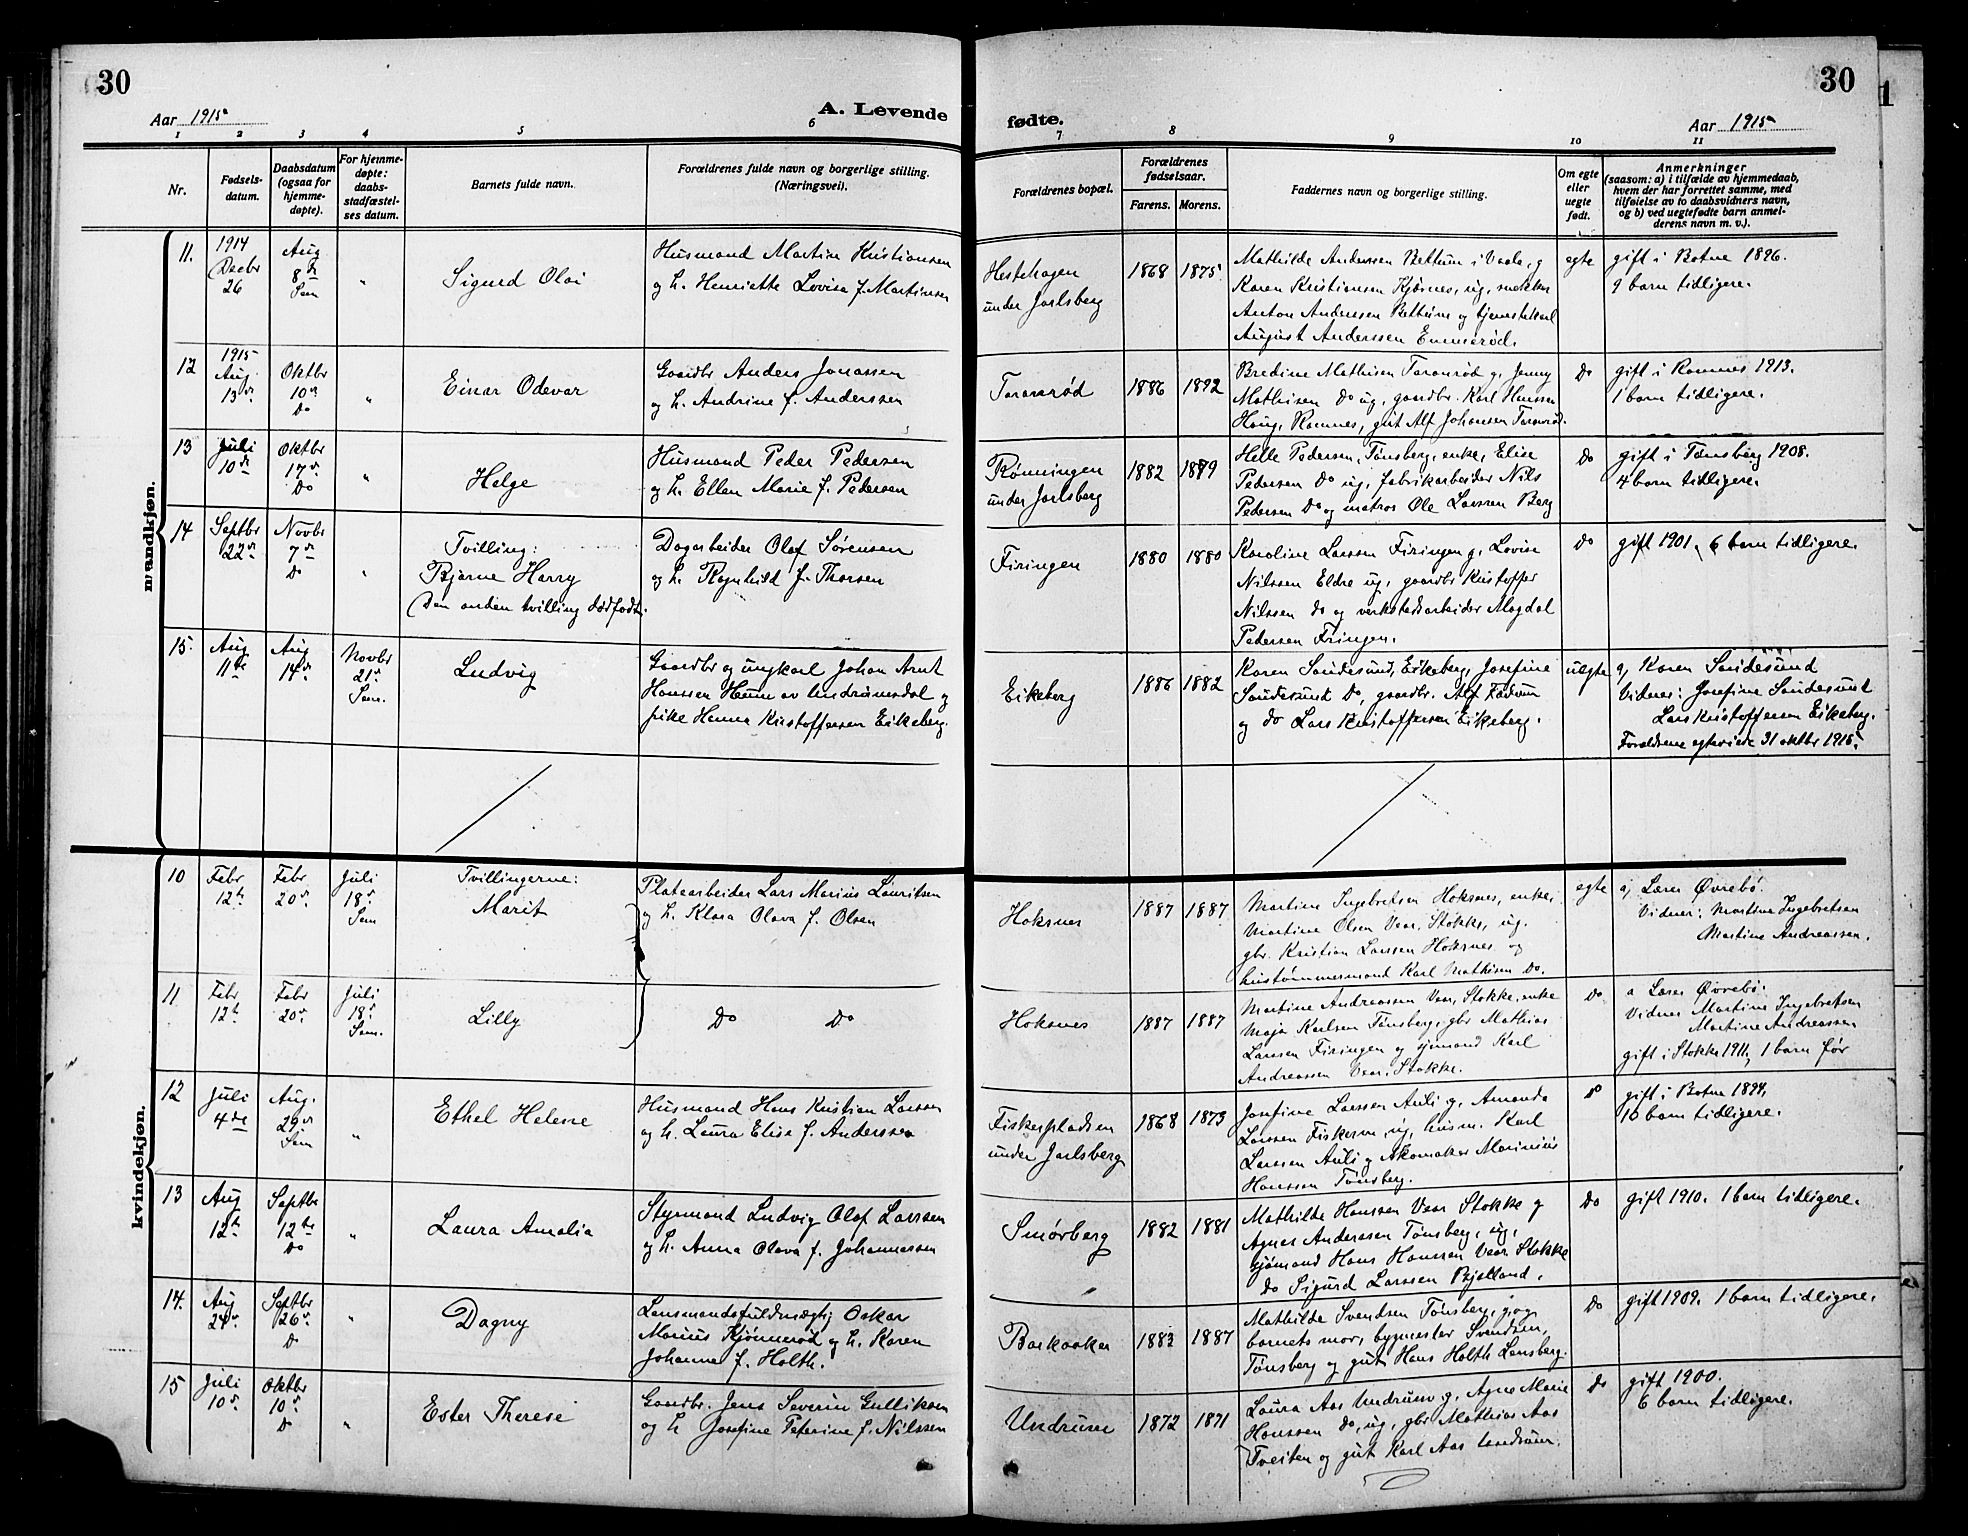 30
Aar 1915
A. Levende
1 2 3 4 5 6
Nr.
Fødsels-
datum.
Daabsdatum
(ogsaa for
hjemme-
døpte).
For hjemme-
døpte:
daabs-
stadfæstel-
ses datum.
Barnets fulde navn.
Forældrenes fulde navn og borgerlige stilling.
(Næringsvei).
mandkjøn.
11.
1914
Decbr
26
Aug
8de
Sem
"
Sigurd Olai
Husmand Martin Kristiansen
og h. Henriette Lovise f. Martinsen
12
1915
Aug.
13de
Oktbr
10de
Do
"
Einar Odevar
Gaardbr Anders Jonassen
og h. Andrine f. Anderssen
13
Juli
10de
Oktbr
17de
Do
"
Helge
Husmand Peder Pedersen
og h. Ellen Marie f. Pedersen
14
Septbr
22de
Novbr
7de
Do
"
Tvilling:
Bjarne Harry
(Den anden tvilling dødfødt.
Dagarbeider Olaf Sørensen
og h. Ragnhild f. Thorsen
15.
Aug
11te
Aug
14de
Novbr
21de
Sem.
Ludvig
Gaardbr og ungkarl Johan Arnt
Hanssen Haum av Undrumsdal og
pike Hanna Kristoffersen Eikeberg.
kvindekjøn.
10
Febr
12te
Febr
20de
Juli
18de
Sem
Tvillingerne:
Marit
Platearbeider Lars Marius Lauritsen
og h. Klara Olava f. Olsen
11
Febr
12te
Febr
20de
Juli
18de
Sem.
Lilly
Do Do
12
Juli
4de
Aug.
29de
Sem
"
Ethel Helene
Husmand Hans Kristian Larssen
og h. Laura Elise f. Anderssen
13
Aug
12te
Septbr
12te
Do
"
Laura Amalia
Styrmand Ludvig Olaf Larssen
og h. Anna Olava f. Johannessen
14.
Aug
24de
Septbr
26de
Do
"
Dagny
Lensmandsfuldmægtig Oskar
Marius Kjønnerød og h. Karen
Johanne f. Holth.
15
Juli
10de
Oktbr
10de
Do
"
Ester Therese
Gaardbr. Jens Severin Gulliksen
og h Josefine Peterine f. Nilssen
30
fødte.
Aar 1915
7 8 9 10 11
Forældrenes bopæl.
Forældrenes
fødselsaar.
Farens. Morens.
Faddernes navn og borgerlige stilling.
Om egte
eller
uegte
født.
Anmerkninger
(saasom: a) i tilfælde av hjemmedaab,
hvem der har forrettet samme, med
tilføielse av to daabsvidners navn,
og b) ved uegtefødte barn anmel-
derens navn m. v.).
Hestehagen
under Jarlsberg
1868 1875
Mathilde Anderssen Bettum i Vaale, g
Karen Kristiansen Kjærnes, ug, snekker
Anton Anderssen Bettum og tjenestekarl
August Anderssen Emmerød.
egte
gift i Botne 1896.
9 barn tidligere.
Taranrød
1886 1892
Bredine Mathisen Taranrød g, Jenny
Mathisen Do ug, gaardbr. Karl Hanssen
Haug, Ramnes, gut Alf Johansen Taranrød.
Do
gift i Ramnes 1913.
1 barn tidligere.
Rønningen
under Jarlsberg
1882 1889
Helle Pedersen, Tønsberg, enke, Elise
Pedersen Do ug, fabrikarbeider Nils
Pedersen Do og matros Ole Larssen Berg
Do
gift i Tønsberg 1908.
4 barn tidligere.
Firingen
1880 1880
Karoline Larssen Firingen g, Lovise
Nilssen Eldre ug, gaardbr Kristoffer
Nilssen do og verkstedsarbeider Magdal
Pedersen Firingen.
Do
gift 1901, 6 barn tidligere.
Eikeberg
1886 1882
Karen Sandesund, Eikeberg, Josefine
Sandesund Do, gaardbr. Alf Fadum
og do Lars Kristoffersen Eikeberg.
uegte
a, Karen Sandesund
Vidner: Josefine Sandesund
Lars Kristoffersen Eikeberg.
Forældrene egteviede 31 oktbr 1915.
Hoksnes
1887 1887
Martine Ingebretsen Hoksnes, enke,
Martine Olsen Vear, Stokke, ug.
gbr. Kristian Larssen Hoksnes og
hustømmermand Karl Mathisen Do.
egte
a, Lærer Øvrebø.
Vidner: Martine Ingebretsen
Martine Andreassen.
Hoksnes
1887 1887
Martine Andreassen Vear, Stokke, enke
Maja Karlsen Tønsberg, gbr Mathias
Larssen Firingen og sjømand Karl
Andreassen Vear, Stokke.
Do
a Lærer Øvrebø.
Vidner Martine Ingebretsen
Martine Andreassen
gift i Stokke 1911, 1 barn før
Fiskerpladsen
under Jarlsberg
1868 1873
Josefine Larssen Auli g, Amanda
Larssen Fiskerm, ug, husm. Karl
Larssen Auli og skomaker Marinius
Hanssen Tønsberg.
gift i Botne 1894.
10 barn tidligere.
Smørberg
1882 1881
Mathilde Hanssen Vear Stokke g
Agnes Anderssen Tønsberg, ug,
sjømand Hans Hanssen Vear Stokke
do Sigurd Larssen Bjelland.
Do
gift 1910. 1 barn tidligere.
Barkaaker
1883 1887
Mathilde Svendsen Tønsberg, g, og
barnets mor, bygmester Svendsen,
Tønsberg og gut Hans Holth Lensberg.
Do
gift 1909. 1 barn tidligere.
Undrum
1872 1871
Laura Aas Undrum g, Agnes Marie
Hanssen Do, ug, gbr Mathias Aas
Tveiten og gut Karl Aas Undrum.
Do
gift 1900.
6 barn tidligere.